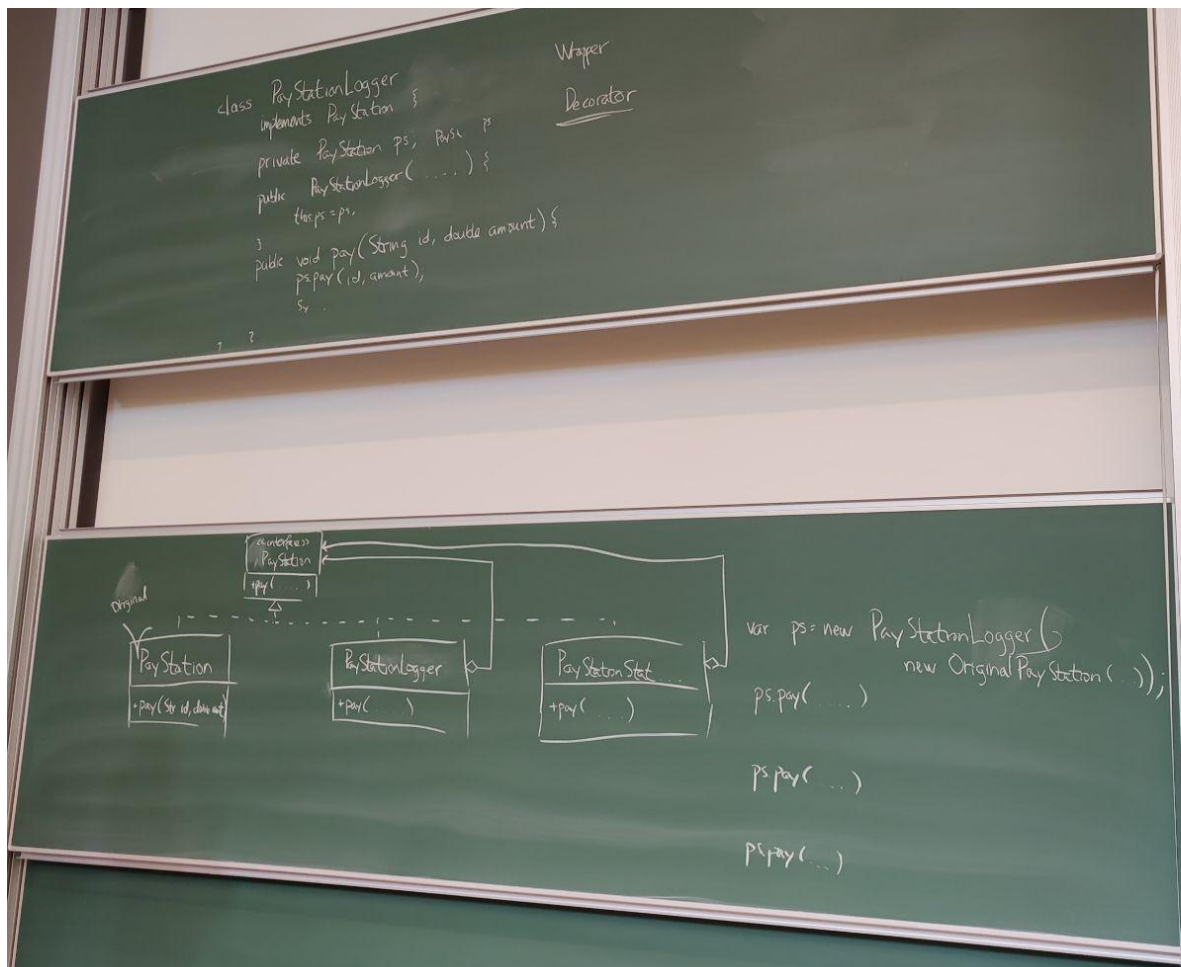 class PayStationLogger
implements PayStation {
private PayStation ps;
public PayStationLogger( .... ) {
this.ps = ps;
}
public void pay(String id, double amount) {
ps.pay(id, amount);
}
}
Wrapper
Decorator
«interface»
PayStation
+pay( .... )
Original
PayStation
+pay(Str id,
PayStationLogger
+pay( ... )
PayStationStat...
+pay( ... )
var ps = new PayStationLogger(
new OriginalPayStation( .. ));
ps.pay( .... )
ps.pay( ... )
ps.pay( ... )